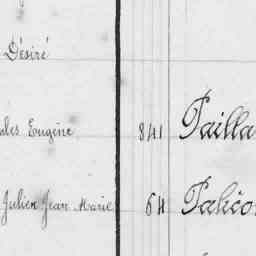 Désiré
ules Eugène 841 Pailla
Julien Jean Marie 64